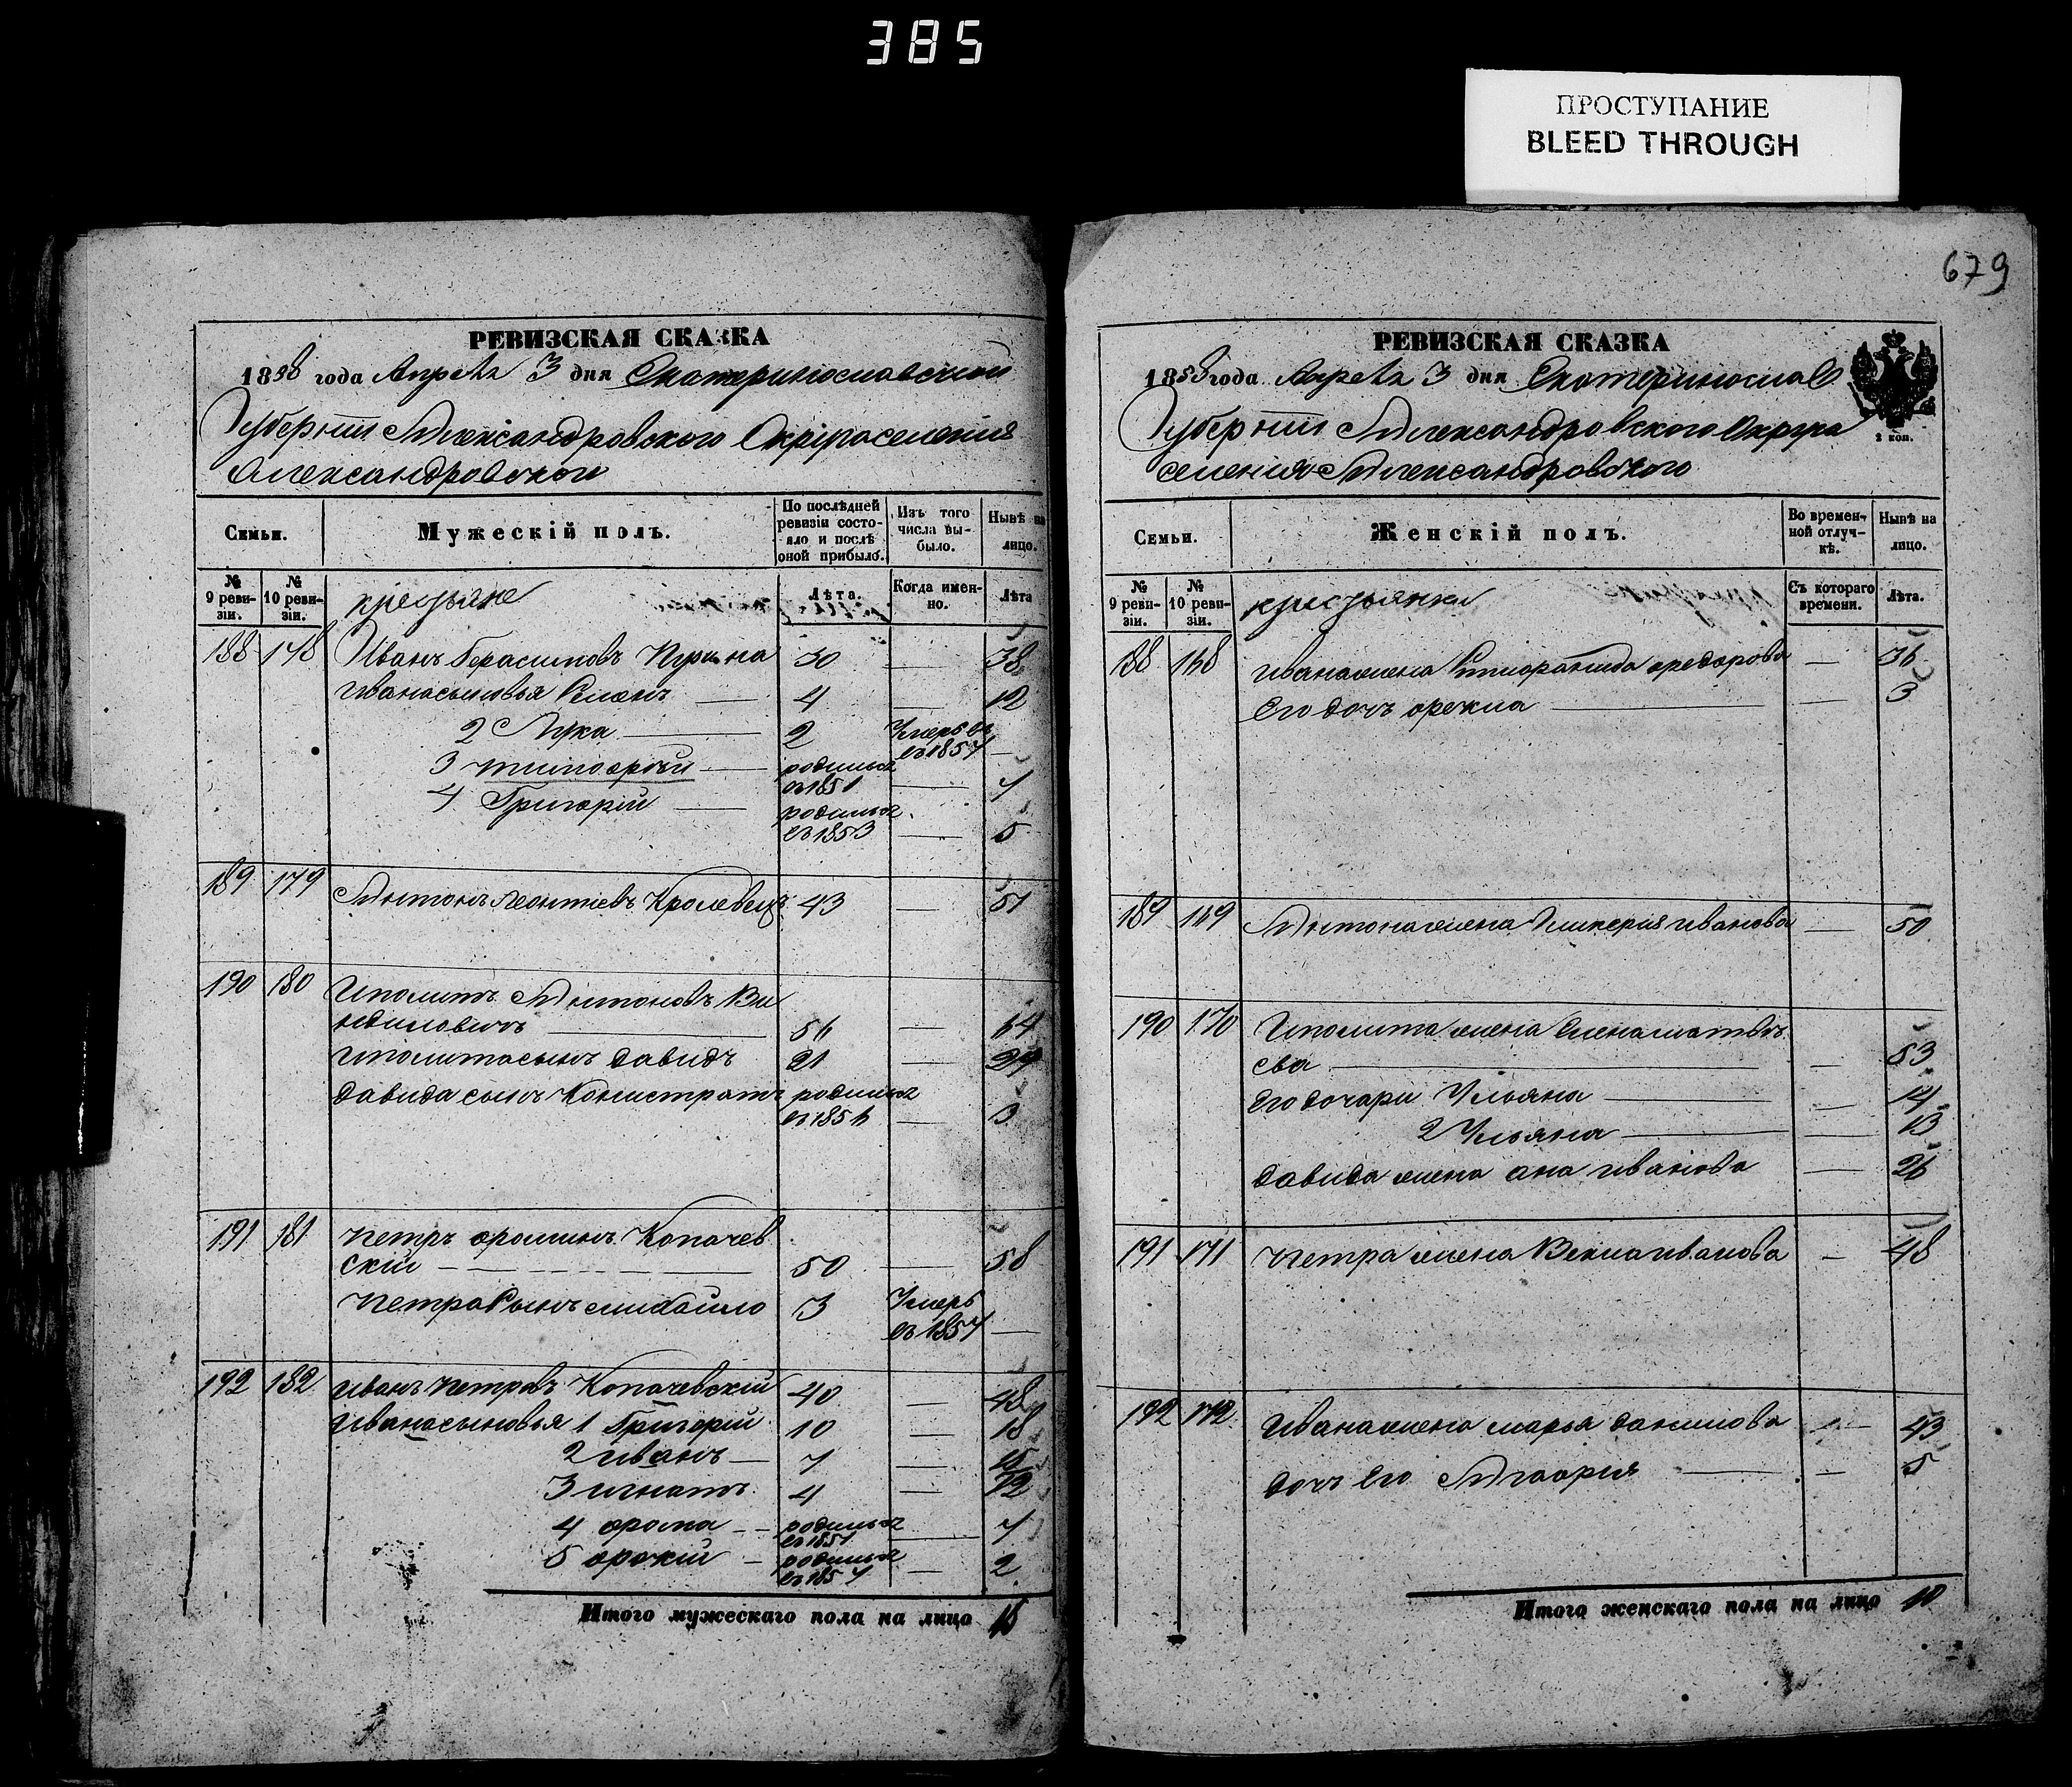 385
ПРОСТУПАНИЕ
BLEED THROUGH
679
РЕВИЗСКАЯ СКАЗКА
1858 года Апреля 3 дня Екатеринославской
Губернии Александровского Округа селения
Александровского
Семьи.
Мужескій полъ.
По послѣдней ревизіи состояло и послѣ оной прибыло.
Изъ того числа выбыло.
Нынѣ на лицо.
№ 9 ревизіи.
№ 10 ревизіи.
крестьяне
Лѣта.
Когда именно.
Лѣта
188 178 Иванъ Герасимовъ 30 — 38
Ивана сыновья — 4 — 12
2 Лука — 2 Умеръ въ 1857 —
3 тимофей — родился въ 1851 — 7
4 Григорій — родился въ 1853 — 5
189 179 Антонъ Леонтіевъ Кролевецъ 43 — 51
190 180 Иполитъ Антоновъ
— 56 — 64
Иполита сынъ Давидъ 21 — 29
Давида сынъ родился въ 1856 — 3
191 181 Петръ фоминъ Копачев
скій — 50 — 58
Петра Сынъ михайло 13 Умеръ въ 1857 —
192 182 Иванъ Петровъ Копачевскій 40 — 48
Ивана сыновья 1 Григорій 10 — 18
2 иванъ — 7 — 15
3 игнатъ 4 — 12
4 фома — родился въ 1851 — 7
5 — родился въ 1857 — 2
Итого мужескаго пола на лицо 16
РЕВИЗСКАЯ СКАЗКА
1858 года Апреля 3 дня Екатеринослав
Губернии Александровского Округа
селения Александровского
2 коп.
Семьи.
Женскій полъ.
Во временной отлучкѣ.
Нынѣ на лицо.
№ 9 ревизіи.
№ 10 ревизіи.
крестьянки
Съ котораго времени.
Лѣта.
188 168 Ивана жена федорова — 36
Его дочъ — 3
189 169 Антона жена иванова — 50
190 170 Иполита жена Елена матвѣ
ева — 53
Его дочари Ульяна — 14
2 Ульяна — 13
Давида жена ана иванова — 26
191 171 Петра жена иванова — 48
192 172 Ивана жена марья данилова — 43
дочъ Его — 5
Итого женскаго пола на лицо 10